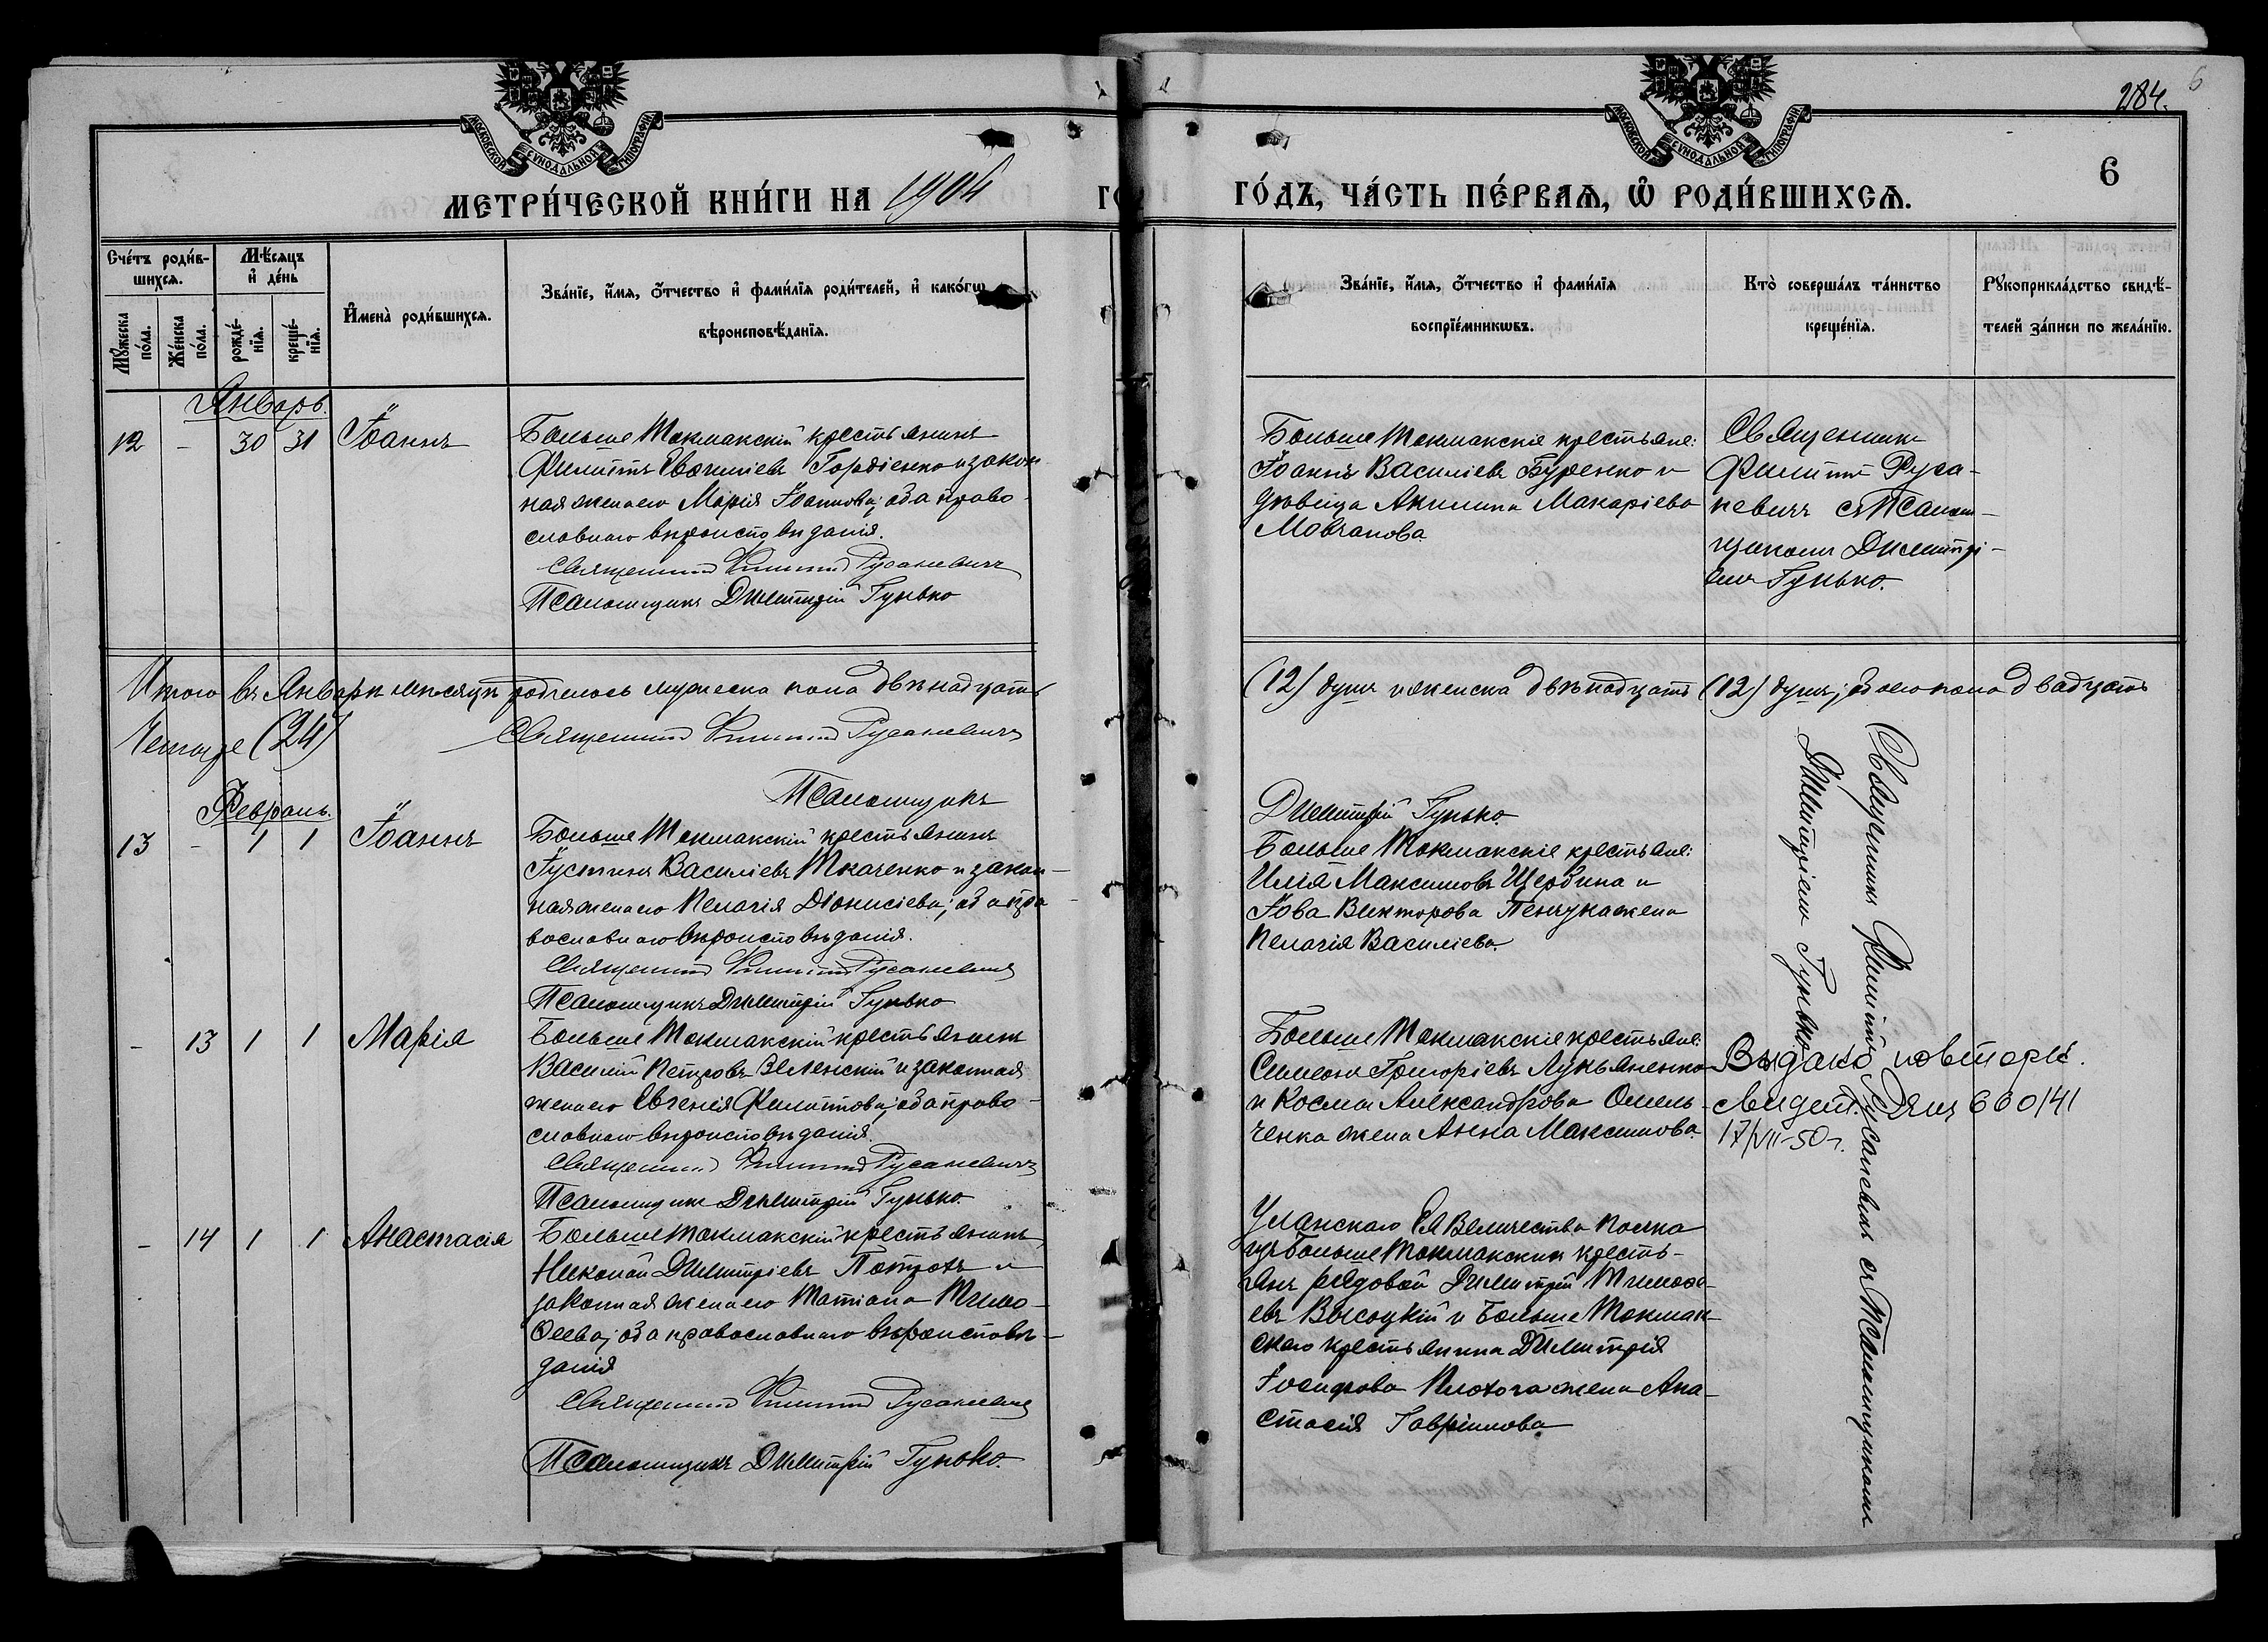 284.
6
МОСКОВСКОЙ СѴНОДАЛЬНОЙ ТИПОГРАФІИ
МОСКОВСКОЙ СѴНОДАЛЬНОЙ ТИПОГРАФІИ
6
МЕТРИ́ЧЕСКОЙ КНИ́ГИ НА 1904
ГО́ДЪ, ЧА́СТЬ ПЕ́РВАѦ, Ѡ҆ РОДИ́ВШИХСѦ.
Сче́тъ роди́в-
шихсѧ.
Мѣ́сѧцъ
и҆ де́нь
Мꙋ́жеска
по́ла.
Же́нска
по́ла.
рожде́-
нїѧ.
креще́-
нїѧ.
И҆мена̀ роди́вшихсѧ.
Зва́нїе, и҆́мѧ, ѻ҆́тчество и҆ фами́лїѧ роди́телей, и҆ како́гѡ
вѣроисповѣ́данїѧ.
Зва́нїе, и҆́мѧ, ѻ҆́тчество и҆ фами́лїѧ
воспрїе́мникѡвъ.
Кто̀ соверша́лъ та́инство
креще́нїѧ.
Рꙋкоприкла́дство свидѣ́-
телей за́писи по жела́нїю.
Январь.
12 - 30 31 Іоаннъ
Больше Токмакскій крестьянинъ
Филиппъ Евфиміевъ Гордіенко и закон
ная жена его Марія Іоаннова; оба право-
славнаго вѣроисповѣданія.
Священникъ Филиппъ Русаневичъ
Псаломщикъ Димитрій Гунько
Больше Токмакскіе крестьяне:
Іоаннъ Василіевъ Буренко и
дѣвица Акилина Макаріева
Мовчанова.
Священникъ
Филиппъ Руса-
невичъ съ Псалом-
щикомъ Димитрі-
емъ Гунько.
Итого въ Январѣ мѣсяцѣ родилось мужеска пола двѣнадцать
(12) душъ и женска двѣнадцать (12) душъ; обоего пола двадцать
четыре (24)
Священникъ Филиппъ Русаневичъ
Псаломщикъ
Димитрій Гунько.
Февраль.
13 - 1 1 Іоаннъ
Больше Токмакскій крестьянинъ
Іустинъ Василіевъ Ткаченко и закон-
ная жена его Пелагія Діонисіева; оба пра-
вославнаго вѣроисповѣданія.
Священникъ Филиппъ Русаневичъ
Псаломщикъ Димитрій Гунько
Больше Токмакскіе крестьяне:
Илія Максимовъ Щербина и
Іова Викторова жена
Пелагія Василіева.
- 13 1 1 Марія
Больше Токмакскій крестьянинъ
Василій Петровъ Зеленскій и законная
жена его Евгенія Филиппова; оба право-
славнаго вѣроисповѣданія.
Священникъ Филиппъ Русаневичъ
Псаломщикъ Димитрій Гунько.
Больше Токмакскіе крестьяне:
Симеонъ Григоріевъ Лукьяненко
и Космы Александрова Омель-
ченка жена Анна Максимова.
Выдано повторн.
свидет. 660/41
17/VII-50 г.
- 14 1 1 Анастасія
Больше Токмакскій крестьянинъ
Николай Димитріевъ и
законная жена его Татіана Тимо-
ѳеева; оба православнаго вѣроисповѣ-
данія
Священникъ Филиппъ Русаневичъ
Псаломщикъ Димитрій Гунько.
Уланскаго Ея Величества полка
изъ Больше Токмакскихъ кресть-
янъ рядовой Димитрій Тимоѳе-
евъ Высоцкій и Больше Токмак-
скаго крестьянина Димитрія
Іосифова жена Ана-
стасія Гавріилова.
Священникъ Филиппъ Русаневичъ съ Псаломщикомъ
Димитріемъ Гунько.